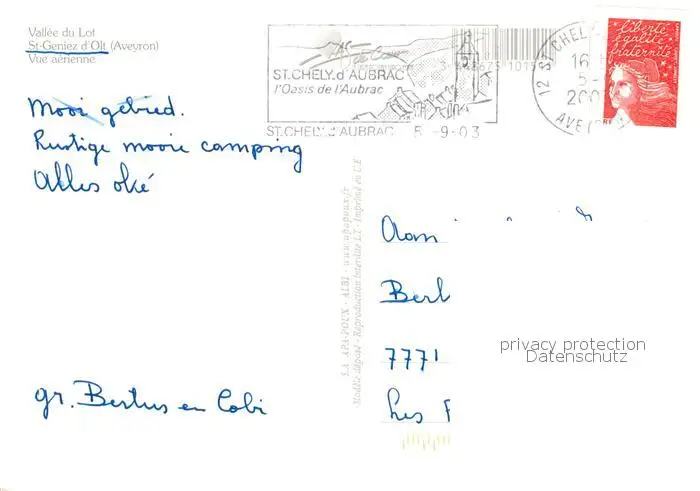 Vallée du Lot
St-Geniez d'Olt (Aveyron)
Vue aérienne
ST.CHELY.d'AUBRAC
l'Oasis de l'Aubrac
ST.CHELY.d'AUBRAC 5-9-03
12 ST CHELY
16
5-
200
AVEYRON
liberté
égalité
fraternité
RF
Mooi gebied.
Rustige mooie camping
Alles oké
gr. Bertus en Cobi
S.A. APA-POUX - ALBI - www.apapoux.fr
Modèle déposé - Reproduction Interdite LT - Imprimé en C.E
Aan
Berl
7771
privacy protection
Datenschutz